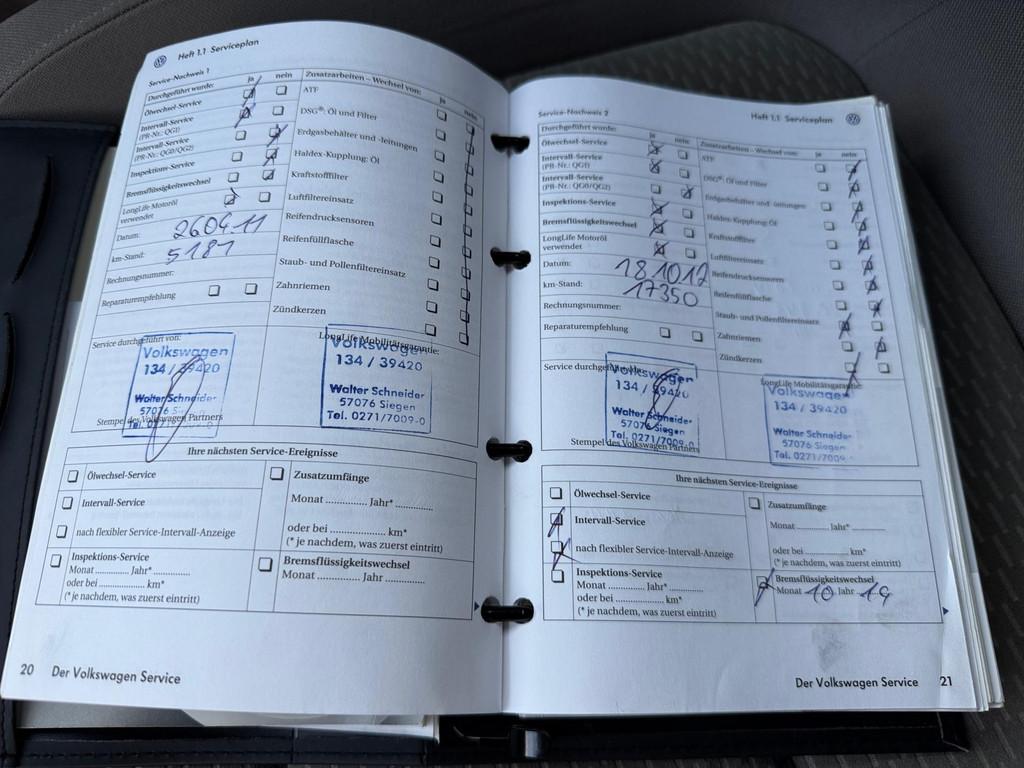 Heft 1.1 Serviceplan
Service-Nachweis 1
Durchgeführt wurde: ja nein
Ölwechsel-Service
Intervall-Service
(PR-Nr.: QG1)
Intervall-Service
(PR-Nr.: QG0/QG2)
Inspektions-Service
Bremsflüssigkeitswechsel
LongLife Motoröl
verwendet
Datum: 26.04.11
km-Stand: 5181
Rechnungsnummer:
Reparaturempfehlung
Zusatzarbeiten – Wechsel von: ja nein
ATF
DSG®: Öl und Filter
Erdgasbehälter und -leitungen
Haldex-Kupplung: Öl
Kraftstofffilter
Luftfiltereinsatz
Reifendrucksensoren
Reifenfüllflasche
Staub- und Pollenfiltereinsatz
Zahnriemen
Zündkerzen
Service durchgeführt von:
Volkswagen
134 / 39420
Walter Schneider
57076 Siegen
Tel. 0271/7009-0
Stempel des Volkswagen Partners
LongLife Mobilitätsgarantie:
Volkswagen
134 / 39420
Walter Schneider
57076 Siegen
Tel. 0271/7009-0
Ihre nächsten Service-Ereignisse
Ölwechsel-Service
Intervall-Service
nach flexibler Service-Intervall-Anzeige
Inspektions-Service
Monat ........... Jahr* ............
oder bei ...................... km*
(* je nachdem, was zuerst eintritt)
Zusatzumfänge
Monat ............. Jahr* ............
oder bei ...................... km*
(* je nachdem, was zuerst eintritt)
Bremsflüssigkeitswechsel
Monat ............ Jahr ............
20 Der Volkswagen Service
Heft 1.1 Serviceplan
Service-Nachweis 2
Durchgeführt wurde: ja nein
Ölwechsel-Service
Intervall-Service
(PR-Nr.: QG1)
Intervall-Service
(PR-Nr.: QG0/QG2)
Inspektions-Service
Bremsflüssigkeitswechsel
LongLife Motoröl
verwendet
Datum: 18.10.12
km-Stand: 17350
Rechnungsnummer:
Reparaturempfehlung
Zusatzarbeiten – Wechsel von: ja nein
ATF
DSG®: Öl und Filter
Erdgasbehälter und -leitungen
Haldex-Kupplung: Öl
Kraftstofffilter
Luftfiltereinsatz
Reifendrucksensoren
Reifenfüllflasche
Staub- und Pollenfiltereinsatz
Zahnriemen
Zündkerzen
Service durchgeführt von:
Volkswagen
134 / 39420
Walter Schneider
57076 Siegen
Tel. 0271/7009-0
Stempel des Volkswagen Partners
LongLife Mobilitätsgarantie:
Volkswagen
134 / 39420
Walter Schneider
57076 Siegen
Tel. 0271/7009-0
Ihre nächsten Service-Ereignisse
Ölwechsel-Service
Intervall-Service
nach flexibler Service-Intervall-Anzeige
Inspektions-Service
Monat ........... Jahr* ............
oder bei ...................... km*
(* je nachdem, was zuerst eintritt)
Zusatzumfänge
Monat ........... Jahr* ............
oder bei ...................... km*
(* je nachdem, was zuerst eintritt)
Bremsflüssigkeitswechsel
Monat 10 Jahr 14
Der Volkswagen Service 21